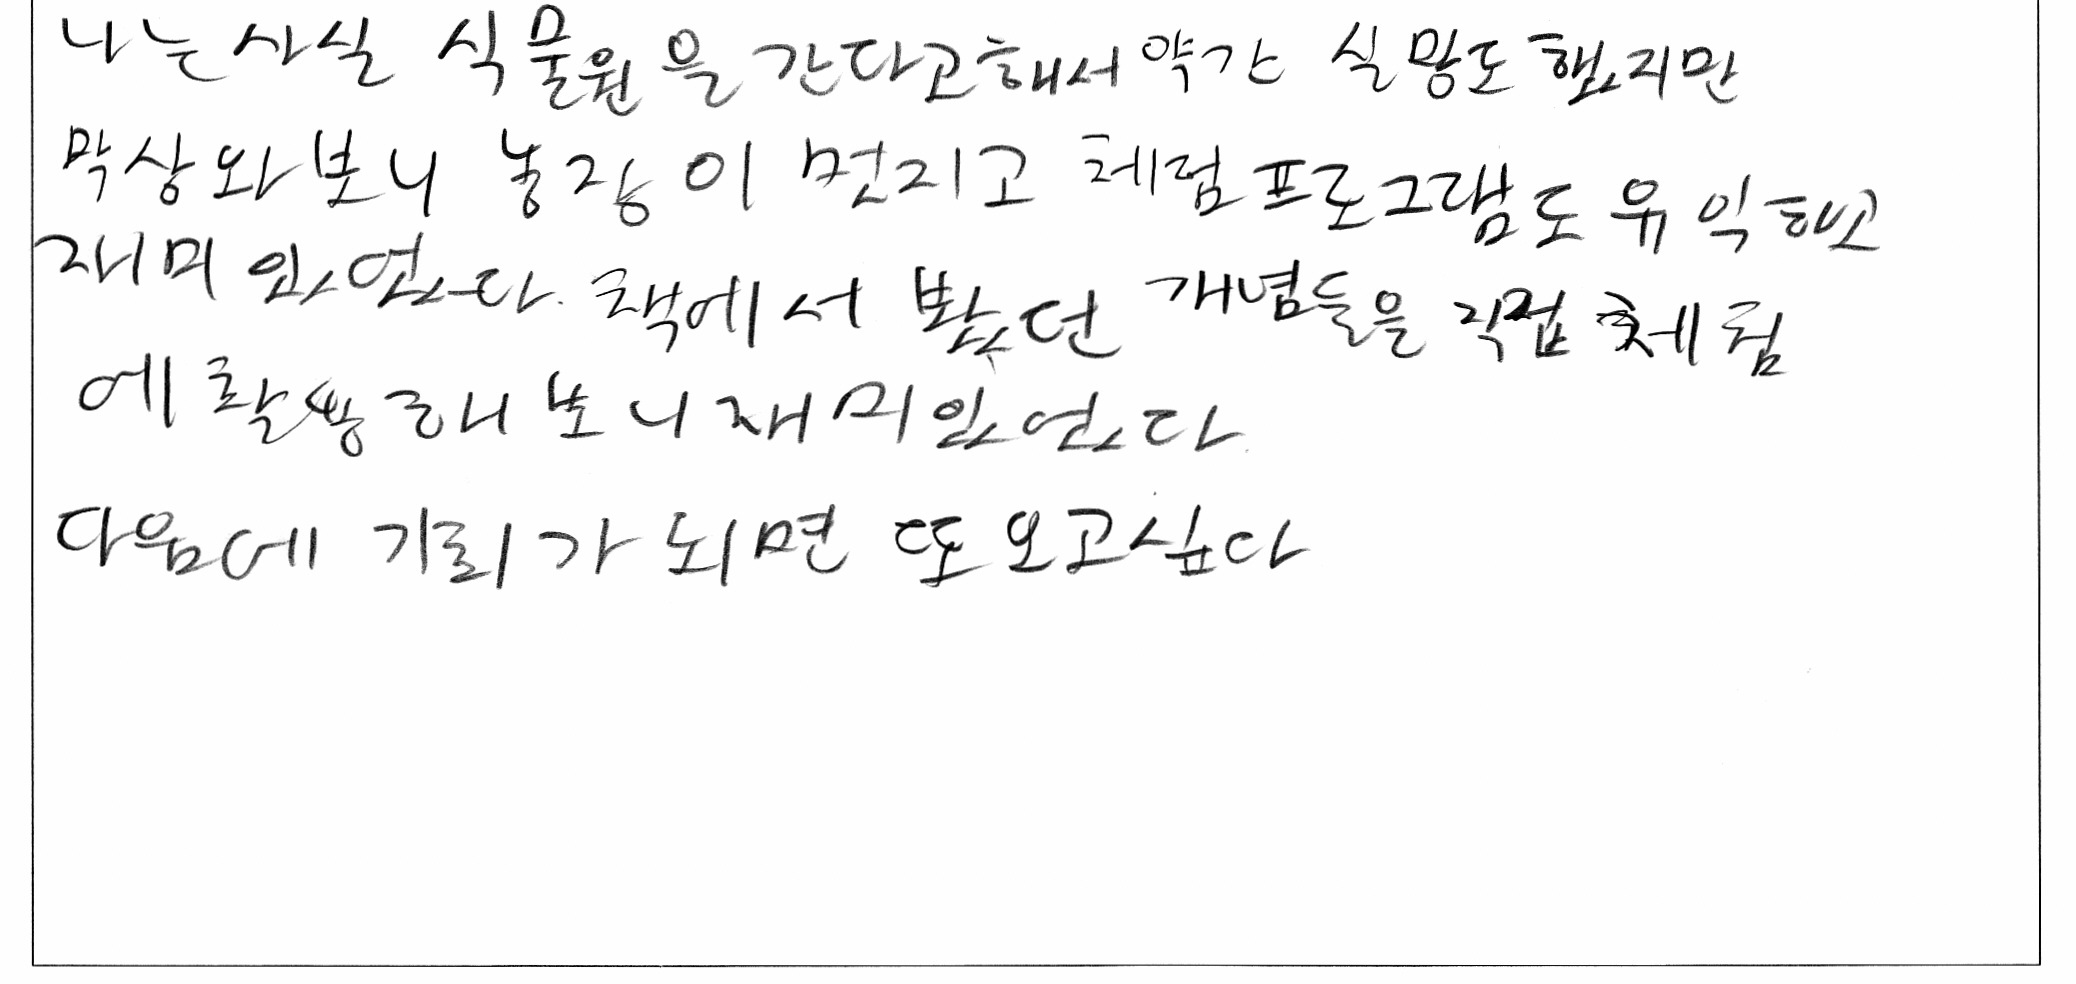 나는 사실 식물원을 간다고해서 약간 실망도 했지만
막상 와보니 농장이 멋지고 체험프로그램도 유익하고
재미있었다. 책에서 봤던 개념들을 직접 체험
에 해보니 재미있었다.
다음에 기회가 되면 또 오고싶다